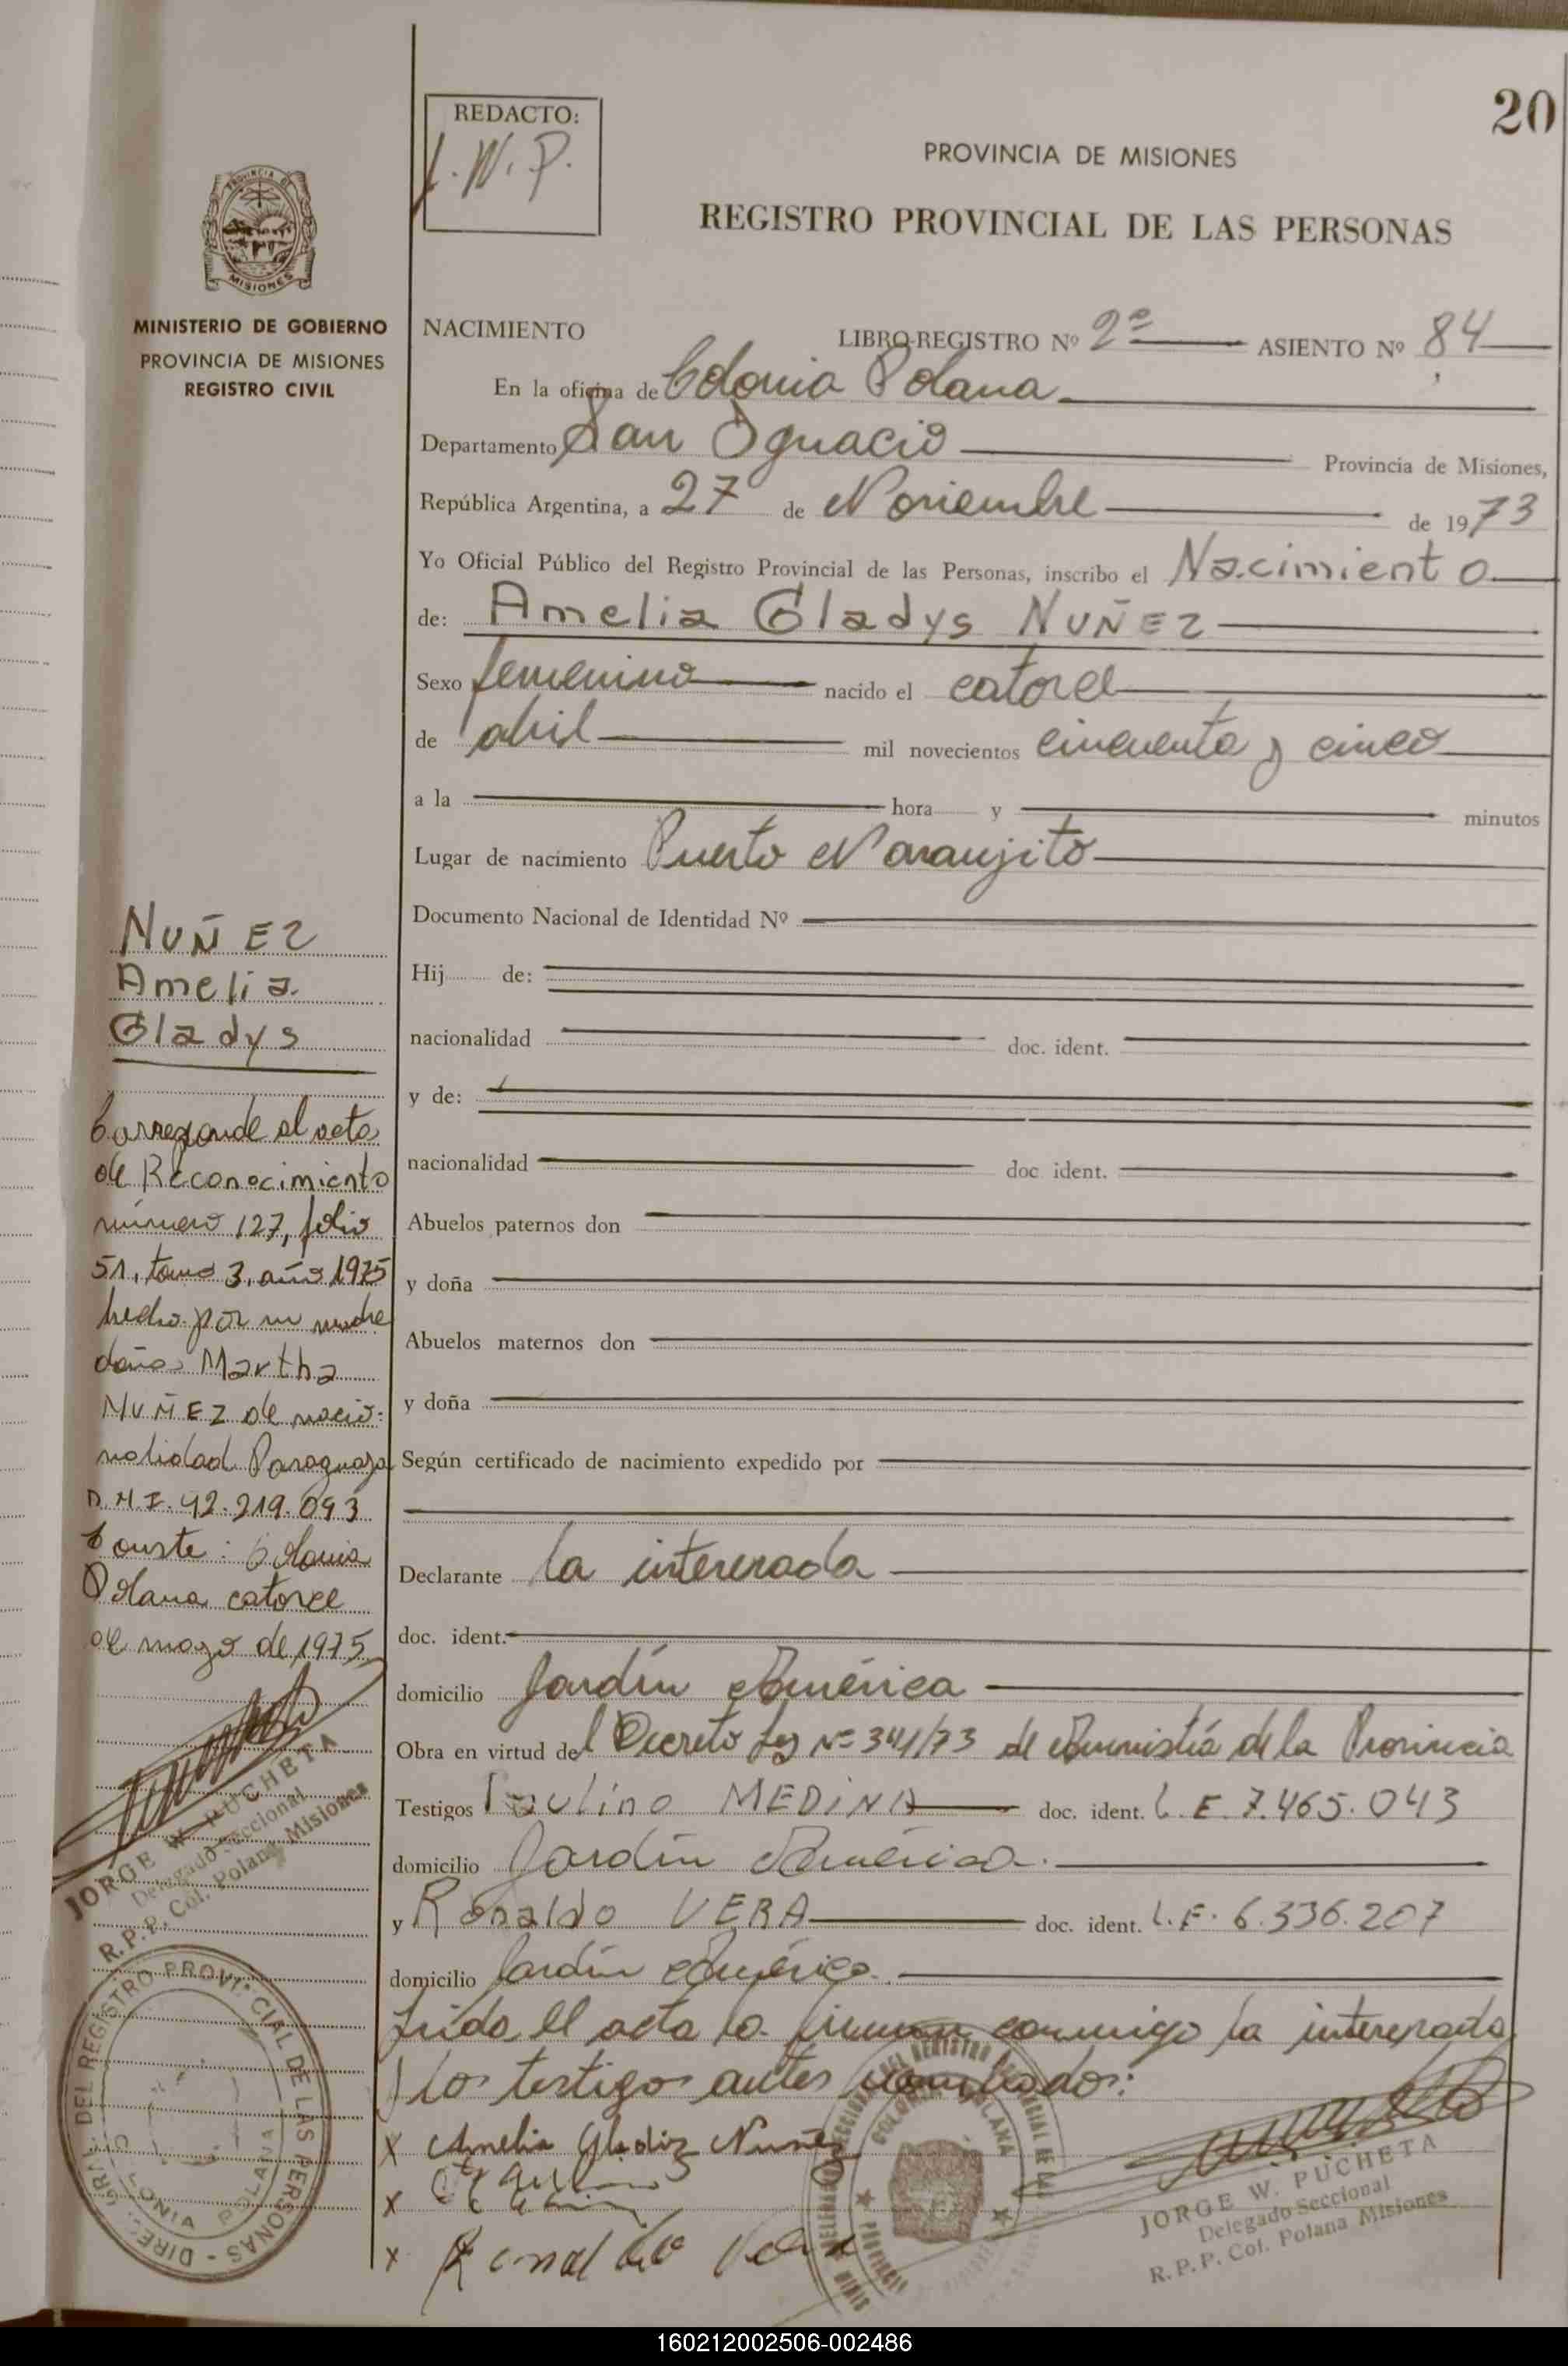 20
REDACTO:
J.W.P.
PROVINCIA DE MISIONES
REGISTRO PROVINCIAL DE LAS PERSONAS
PROVINCIA DE
MISIONES
MINISTERIO DE GOBIERNO
PROVINCIA DE MISIONES
REGISTRO CIVIL
NACIMIENTO LIBRO-REGISTRO Nº 2º ASIENTO Nº 84
En la oficina de Colonia Polana
Departamento San Ignacio Provincia de Misiones,
República Argentina, a 27 de Noviembre de 1973
Yo Oficial Público del Registro Provincial de las Personas, inscribo el Nacimiento
de: Amelia Gladys NUÑEZ
Sexo femenino nacido el catorce
de abril mil novecientos cincuenta y cinco
a la hora y minutos
Lugar de nacimiento Puerto Naranjito
Documento Nacional de Identidad Nº
Hij de:
nacionalidad doc. ident.
y de:
nacionalidad doc. ident.
Abuelos paternos don
y doña
Abuelos maternos don
y doña
Según certificado de nacimiento expedido por
Declarante la interesada
doc. ident.
domicilio Jardín América
Obra en virtud del Decreto Ley Nº 341/73 de Amnistía de la Provincia
Testigos Paulino MEDINA doc. ident. L.E. 7.465.043
domicilio Jardín América.
y Ronaldo VERA doc. ident. L.E. 6.336.207
domicilio Jardín América.
Leida el acta la firman conmigo la interesada
y los testigos antes nombrados:
X Amelia Gladiz Nuñez
X
X Ronaldo Vera
JORGE W. PUCHETA
Delegado Seccional
R.P.P. Col. Polana Misiones
NUÑEZ
Amelia
Gladys
Corresponde al acta
de Reconocimiento
número 127, folio
51, tomo 3, año 1975
hecho por su madre
doña Martha
NUÑEZ de nacio:
nalidad Paraguaya
D.N.I. 92.219.093
Conste: Colonia
Polana catorce
de mayo de 1975
JORGE W. PUCHETA
Delegado Seccional
R.P.P. Col. Polana Misiones
DEL REGISTRO PROVINCIAL DE LAS PERSONAS
COLONIA POLANA
COLONIA POLANA
160212002506-002486